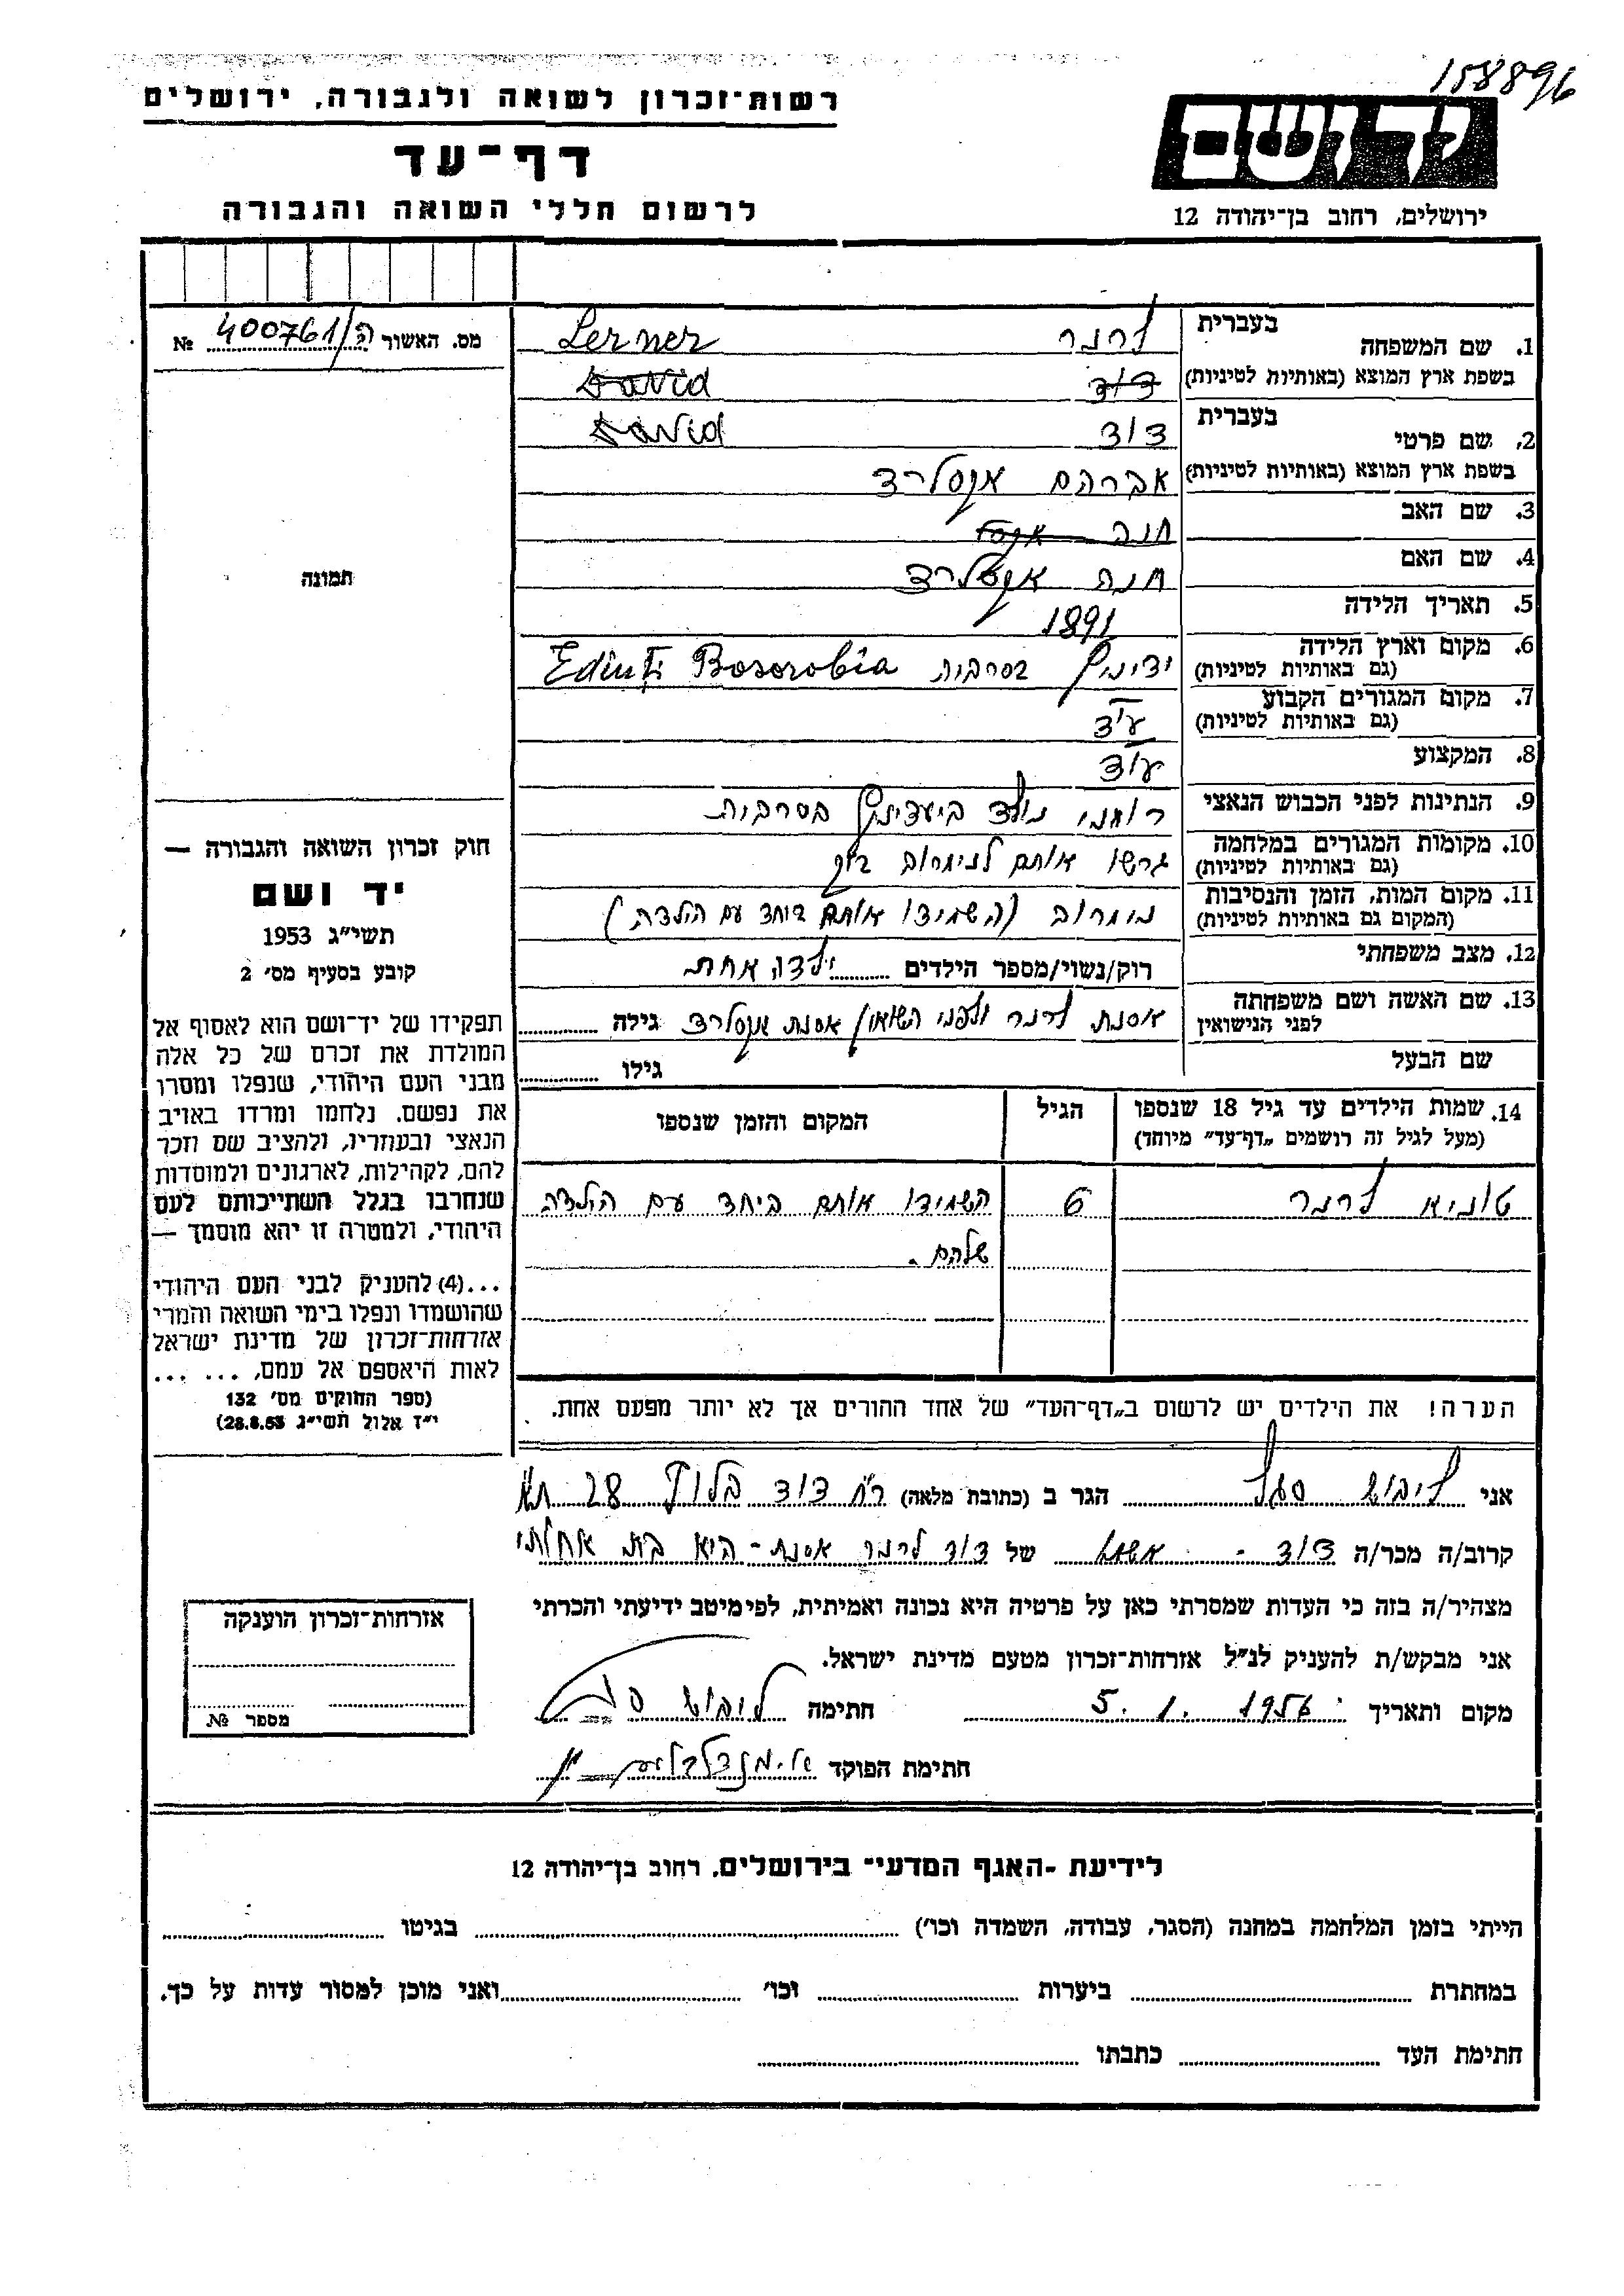 158896
רשות-זכרון לשואה ולגבורה, ירושלים
דף-עד
לרשום חללי השואה והגבורה
יד ושם
ירושלים, רחוב בן-יהודה 12
מס. האשור ה/400761 №
תמונה
חוק זכרון השואה והגבורה —
יד ושם
תשי"ג 1953
קובע בסעיף מס' 2
תפקידו של יד-ושם הוא לאסוף אל
המולדת את זכרם של כל אלה
מבני העם היהודי, שנפלו ומסרו
את נפשם, נלחמו ומרדו באויב
הנאצי ובעוזריו, ולהציב שם וזכר
להם, לקהילות, לארגונים ולמוסדות
שנחרבו בגלל השתייכותם לעם
היהודי, ולמטרה זו יהא מוסמך —
...(4) להעניק לבני העם היהודי
שהושמדו ונפלו בימי השואה והמרי
אזרחות-זכרון של מדינת ישראל
לאות היאספם אל עמם. ... ...
(ספר החוקים מס' 132
י"ז אלול תשי"ג 28.8.53)
1. שם המשפחה בעברית לרנר Lerner
בשפת ארץ המוצא (באותיות לטיניות) דוד David
2. שם פרטי בעברית דוד David
בשפת ארץ המוצא (באותיות לטיניות) אברהם
3. שם האב חנה
4. שם האם חנה
5. תאריך הלידה 1891
6. מקום וארץ הלידה (גם באותיות לטיניות) ידינץ בסרביה Edinti Bosorobia
7. מקום המגורים הקבוע (גם באותיות לטיניות)
8. המקצוע
9. הנתינות לפני הכבוש הנאצי רומני נולד ביעדינץ בסרביה
10. מקומות המגורים במלחמה (גם באותיות לטיניות) גרשו אותם
11. מקום המות, הזמן והנסיבות (המקום גם באותיות לטיניות) (השמידו אותם ביחד עם הילדה)
12. מצב משפחתי רוק/נשוי/מספר הילדים ילדה אחת
13. שם האשה ושם משפחתה לפני הנישואין אסנת לרנר לפני השואה אסנת גילה
שם הבעל גילו
14. שמות הילדים עד גיל 18 שנספו (מעל לגיל זה רושמים "דף-עד" מיוחד) הגיל המקום והזמן שנספו
טוניא לרנר 6 השמידו אותם ביחד עם הילדה
שלהם.
הערה! את הילדים יש לרשום ב"דף-העד" של אחד ההורים אך לא יותר מפעם אחת.
אני ליבוש סגל הגר ב (כתובת מלאה) רח דוד בלוך 28 תא
קרוב/ה מכר/ה דוד - של דוד לרנר אסנת - היא בת אחותי
מצהיר/ה בזה כי העדות שמסרתי כאן על פרטיה היא נכונה ואמיתית, לפי מיטב ידיעתי והכרתי
אני מבקש/ת להעניק לנ"ל אזרחות-זכרון מטעם מדינת ישראל.
מקום ותאריך 5.1.1956 חתימה ליבוש
חתימת הפוקד
אזרחות-זכרון הוענקה
מספר №
לידיעת -האגף המדעי- בירושלים, רחוב בן-יהודה 12
הייתי בזמן המלחמה במחנה (הסגר, עבודה, השמדה וכו') בגיטו
במחתרת ביערות וכו' ואני מוכן למסור עדות על כך.
חתימת העד כתבתו